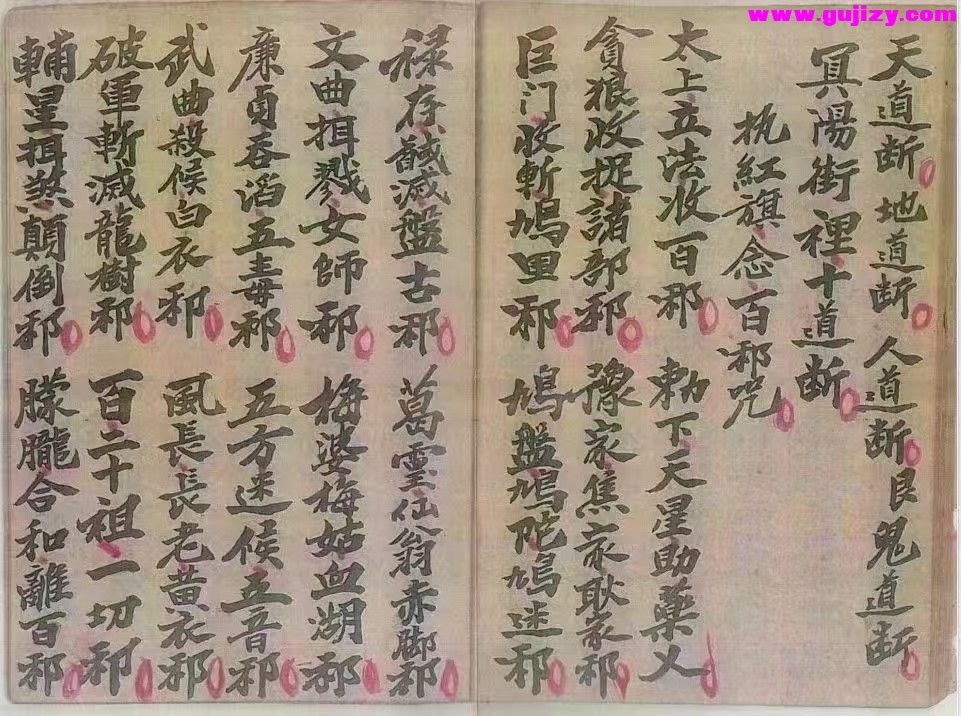 www.gujizy.com
天道断地道断人道断艮鬼道断
冥陽街裡十道断
执紅旗念百邪咒
太上立法收百邪勅下天星助藥乂
貪狼收捉諸部邪豫家焦家耿家邪
巨门收斬鳩里邪鳩盤鳩陀鳩迷邪
禄存鹹滅盤古邪葛靈仙翁赤脚邪
文曲捐戮女師邪梅婆梅姑血湖邪
廉貞吞滔五毒邪五方迷候五音邪
武曲殺候白衣邪風長長老黄衣邪
破軍斬滅龍樹邪百二十祖一切邪
輔星顛倒邪朦朧合和離百邪